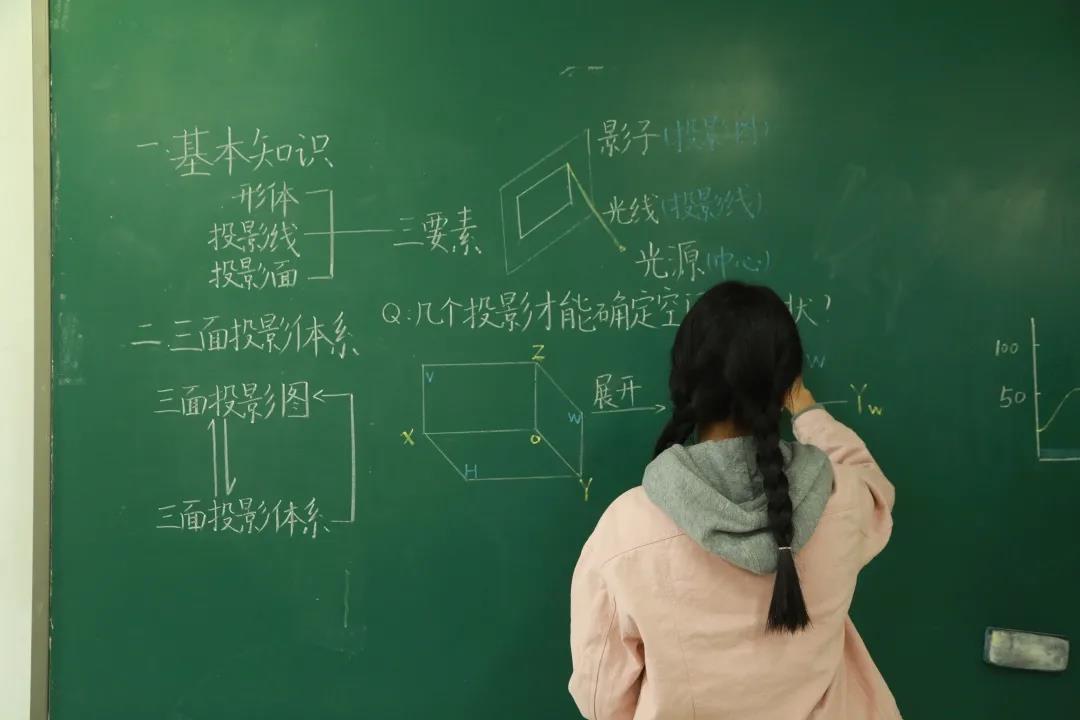 一.基本知识
形体
投影线
投影面
三要素
影子(投影图)
光线(投影线)
光源(中心)
Q:几个投影才能确定空 状?
二.三面投影体系
三面投影图
三面投影体系
Z
V
W
X
O
H
Y
展开
W
Yw
100
50